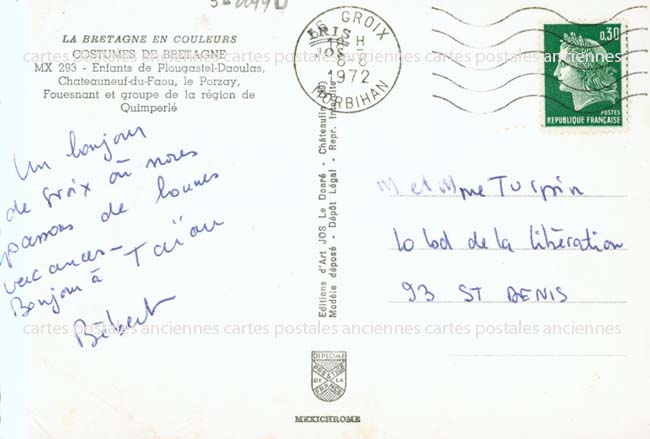 LA BRETAGNE EN COULEURS
COSTUMES DE BRETAGNE
MX 293 - Enfants de Plougastel-Daoulas,
Chateauneuf-du-Faou, le Porzay,
Fouesnant et groupe de la région de
Quimperlé
Un bonjour
de Groix où nous
passons de bonnes
vacances -
Bonjour à
Bébert
Editions d'Art JOS Le Doaré - Châteaulin
Modèle déposé - Dépôt Légal - Repr. Interdite
GROIX
H
1972
MORBIHAN
0,30
POSTES
REPUBLIQUE FRANÇAISE
M et Mme Turpin
10 bd de la libération
93 ST DENIS
cartes postales anciennes cartes postales anciennes cartes postales anciennes
cartes postales anciennes cartes postales anciennes cartes postales anciennes
cartes postales anciennes cartes postales anciennes cartes postales anciennes
DIPLOME
PRESTIGE
DE LA
FRANCE
MEXICHROME